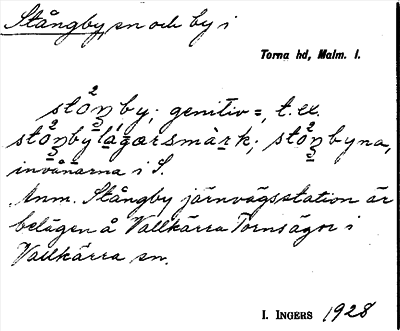 Stångby, sn och by i
Torna hd, Malm. l.
stån²by; genitiv =, t.ex.
stån²by lágarsmàrk; stån²byna,
invånarna i S.
Anm. Stångby järnvägsstation är
belägen å Vallkärra Tornsägor i
Vallkärra sn.
I. INGERS 1928